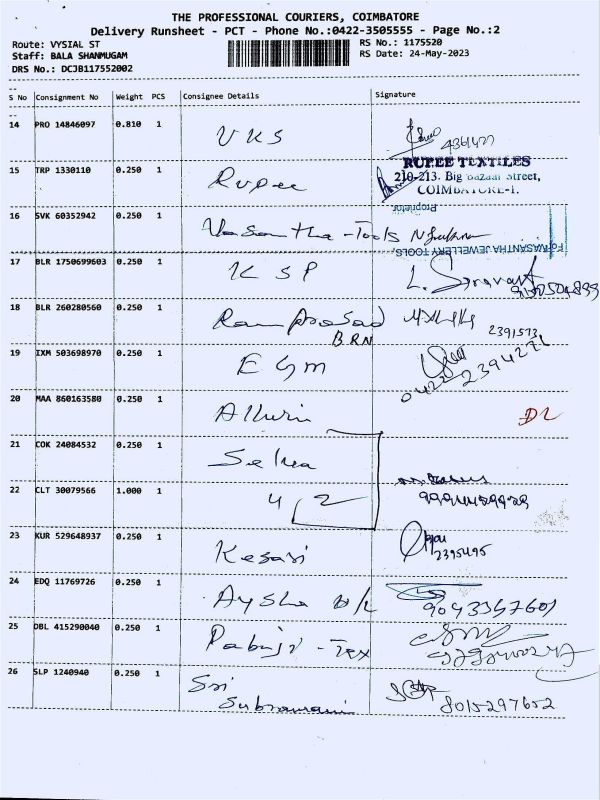 THE PROFESSIONAL COURIERS, COIMBATORE
Delivery Runsheet - PCT - Phone No.:0422-3505555 - Page No.:2
Route: VYSIAL ST
Staff: BALA SHANMUGAM
DRS No.: DCJB117552002
RS No.: 1175520
RS Date: 24-May-2023
S No Consignment No Weight PCS Consignee Details Signature
14 PRO 14846097 0.810 1 VKS 4361427
15 TRP 1330110 0.250 1 Rupee
RUPEE TEXTILES
210-213, Big Bazaar Street,
COIMBATORE-1.
16 SVK 60352942 0.250 1 Vasantha-Tools
Proprietor
For VASANTHA JEWELLERY TOOLS,
17 BLR 1750699603 0.250 1 KSP
18 BLR 260280560 0.250 1 Ram prasad 2391573
BRN
19 IXM 503698970 0.250 1 EGM 0422 2394271
20 MAA 860163580 0.250 1 DL
21 COK 24084532 0.250 1 Selva
22 CLT 30079566 1.000 1 4 2
23 KUR 529648937 0.250 1 Kesari 2395495
24 EDQ 11769726 0.250 1 Aysha
25 DBL 415290040 0.250 1 Tex
26 SLP 1240940 0.250 1 Sri 8015297652
Subramani